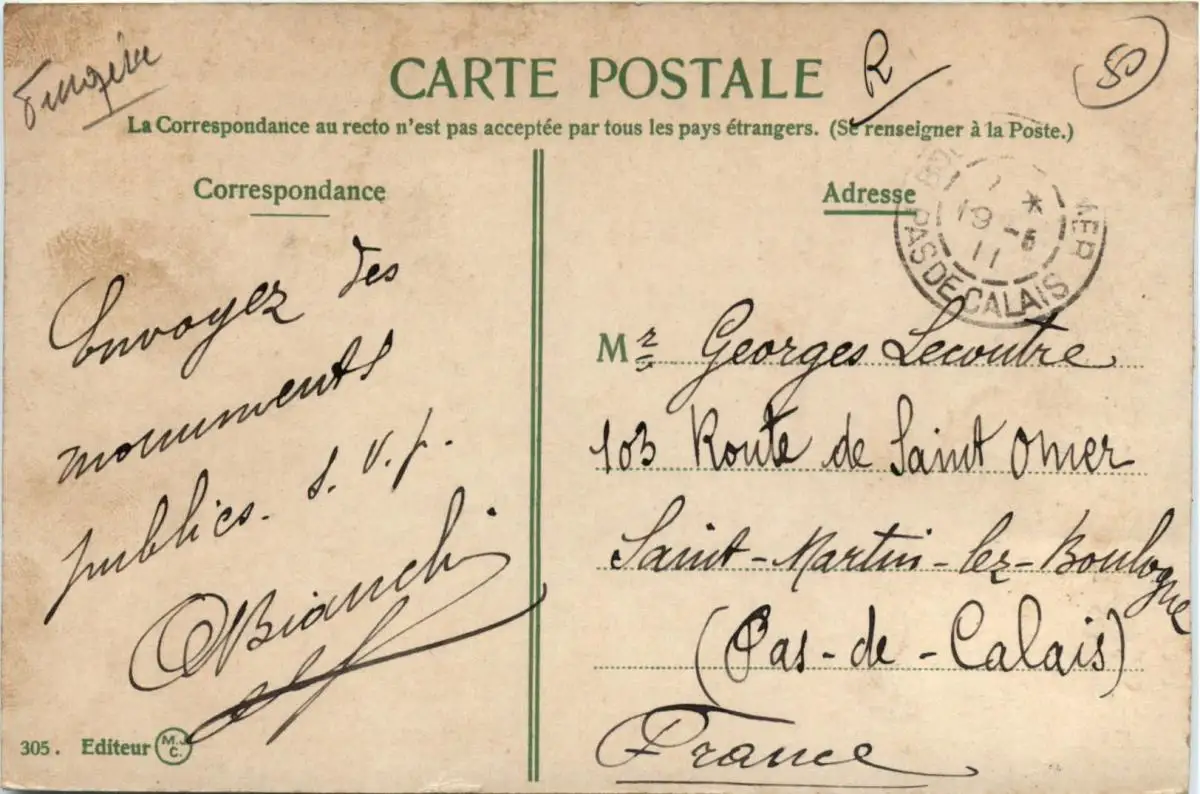 R
50
CARTE POSTALE
La Correspondance au recto n'est pas acceptée par tous les pays étrangers. (Se renseigner à la Poste.)
Correspondance
Envoyez des
monuments
publics. S. V. p.
Bianchi
305. Editeur M.J.C.
Adresse
MER
19 -5
11
PAS DE CALAIS
Mr Georges Lecoutre
103 Route de Saint Omer
Saint-Martin-lez-Boulogne
(Pas-de-Calais)
France